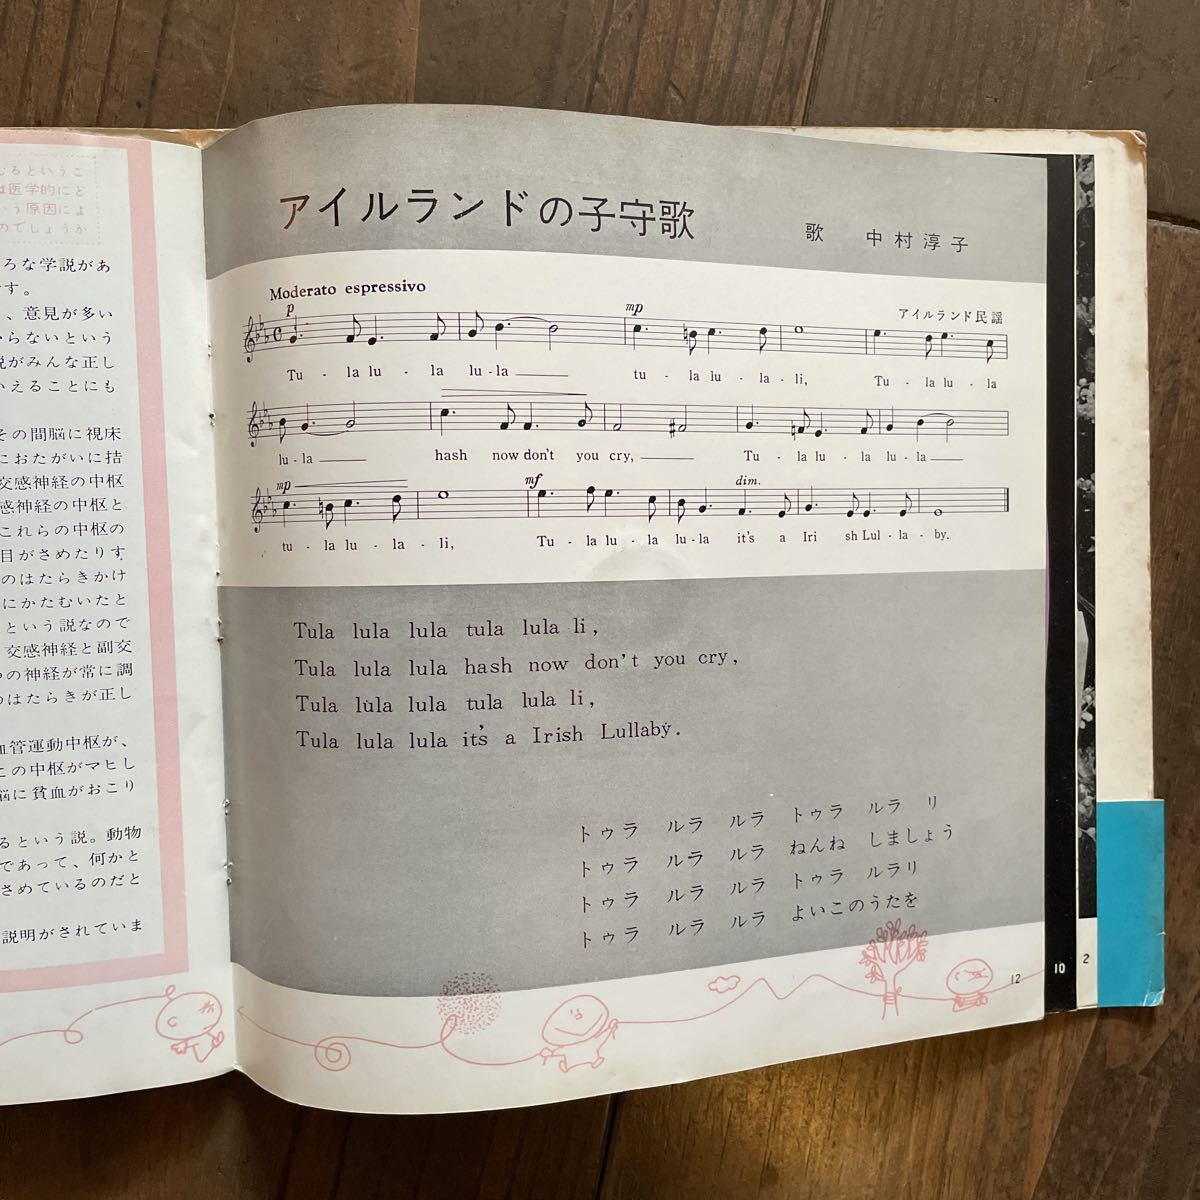 るというこ
は医学的にど
いう原因によ
のでしょうか
ろな学説があ
す。
、意見が多い
からないという
説がみんな正し
いえることにも
その間脳に視床
におたがいに拮
交感神経の中枢
感神経の中枢と
これらの中枢の
目がさめたりす
のはたらきかけ
にかたむいたと
という説なので
交感神経と副交
の神経が常に調
のはたらきが正し
血管運動中枢が、
この中枢がマヒし
脳に貧血がおこり
るという説。動物
であって、何かと
さめているのだと
説明がされていま
アイルランドの子守歌
歌 中村淳子
Moderato espressivo
アイルランド民謡
p mp
Tu - la lu - la lu - la tu - la lu - la - li, Tu - la lu - la
lu - la hash now don't you cry, Tu - la lu - la lu - la
mp mf dim.
tu - la lu - la - li, Tu - la lu - la lu - la it's a Iri sh Lul - la - by.
Tula lula lula tula lula li,
Tula lula lula hash now don't you cry,
Tula lula lula tula lula li,
Tula lula lula it's a Irish Lullaby.
トゥラ ルラ ルラ トゥラ ルラ リ
トゥラ ルラ ルラ ねんね しましょう
トゥラ ルラ ルラ トゥラ ルラリ
トゥラ ルラ ルラ よいこのうたを
12
10
2